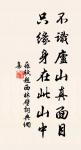 不識廬山真面目
只緣身在此山中
蘇軾題西林壁詞典網
集